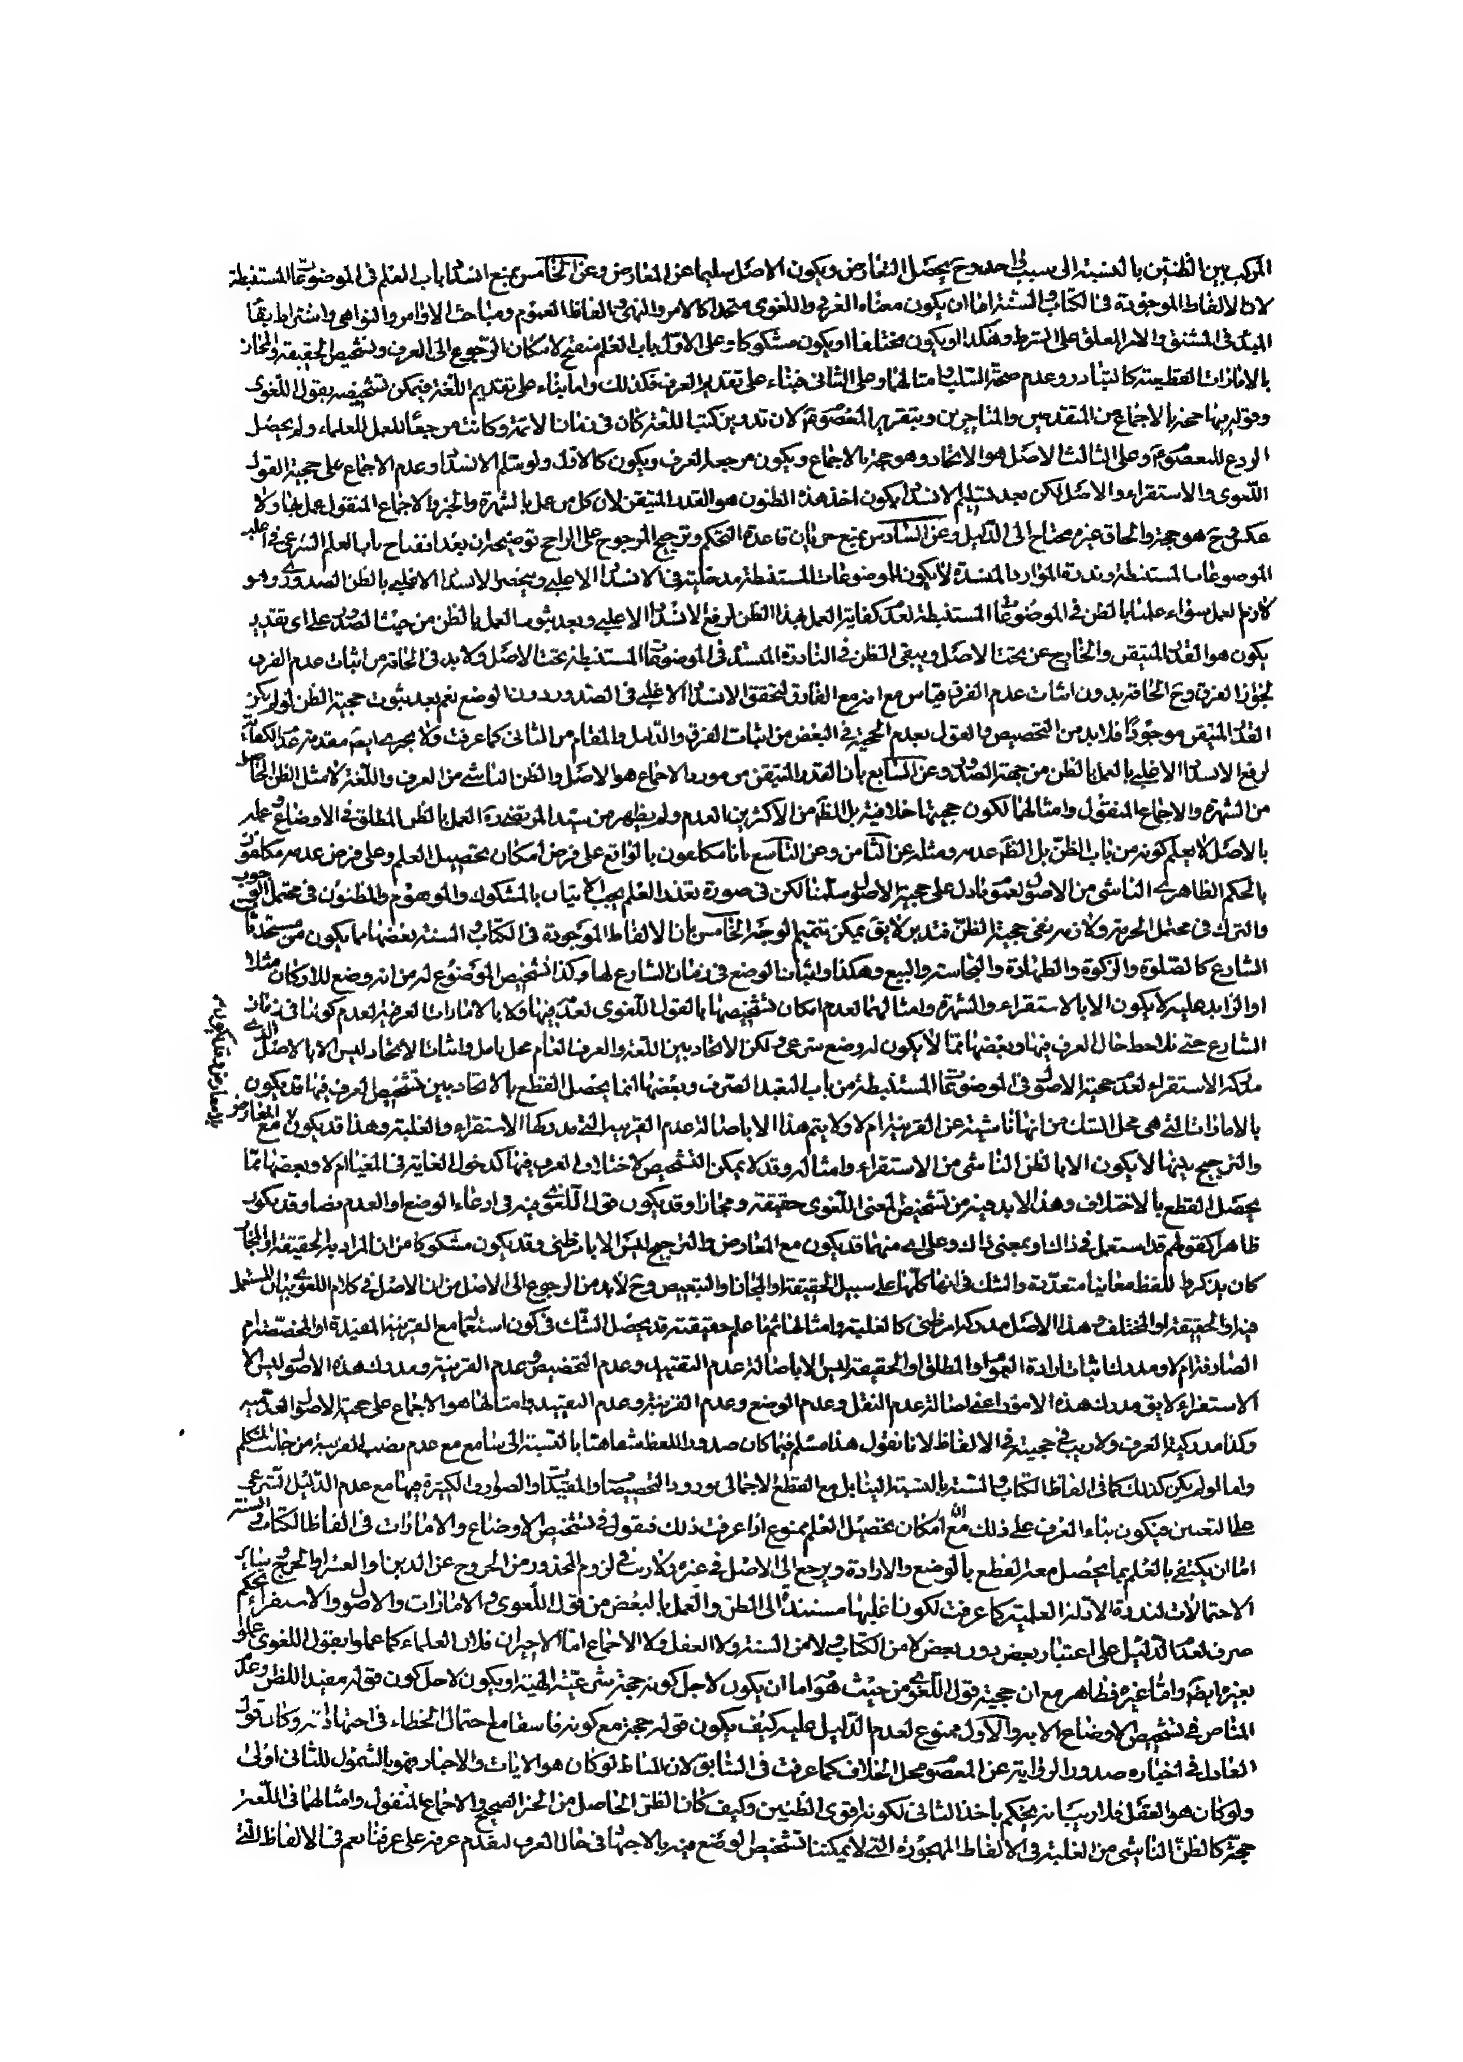 المركب بين الظنين بالنسبة الى سبب واحد وح يحصل التعارض ويكون الاصل سليما عن المعارض وعن الخامس بمنع انسداد باب العلم فى الموضوعات المستنبطة
لان الالفاظ الموجودة فى الكتاب والسنة اما ان يكون معناه العرفى واللغوى متحدا كالامر والنهى والفاظ العموم ومباحث الاوامر والنواهى واشتراط بقاء
المبدء فى المشتق والامر المعلق على الشرط وهكذا او يكون مختلفا او يكون مشكوكا وعلى الاول باب العلم منفتح لامكان الرجوع الى العرف وتشخيص الحقيقة والمجاز
بالامارات القطعية كالتبادر وعدم صحة السلب وامثالهما وعلى الثانى فبناء على تقديم العرف فكذلك واما بناء على تقديم اللغة فيمكن تشخيصه بقول اللغوى
وقوله فيها حجة بالاجماع من المتقدمين والمتاخرين وبتقرير المعصوم لان تدوين كتب اللغة كان فى زمان الائمة وكانت مرجعا للعمل للعلماء ولم يحصل
الردع للمعصوم وعلى الثالث الاصل هو الاتحاد وهو حجة بالاجماع ويكون مرجعه العرف ويكون كالاول ولو سلم الانسداد وعدم الاجماع على حجية القول
اللغوى والاستقراء والاصل لكن بعد تسليم الانسداد يكون اخذ هذه الظنون هو القدر المتيقن لان كل من عمل بالشهرة والخبر والاجماع المنقول عمل بها ولا
عكس وح هو حجة والحاق غيره محتاج الى الدليل وعن السادس بمنع جريان قاعدة التحكم وترجيح المرجوح على الراجح توضيحه ان بعد انفتاح باب العلم الشرعى فى اغلب
الموضوعات المستنبطة وندرة الموارد المنسدة لا يكون الموضوعات المستنبطة مدخلية فى الانسداد الاغلبى وينحصر الانسداد الاغلبى بالظن الصدورى وهو
لازم العمل سواء علمنا بالظن فى الموضوعات المستنبطة لعدم كفاية العمل بهذا الظن لرفع الانسداد الاغلبى وبعد ثبوت العمل بالظن من حيث الصدور على اى تقدير
يكون هو القدر المتيقن والخارج عن تحت الاصل ويبقى الظن فى النادرة المنسدة فى الموضوعات المستنبطة تحت الاصل ولا بد فى الحاقه من اثبات عدم الفرق
لجواز الفرق وح الحاقه بدون اثبات عدم الفرق قياس مع انه مع الفارق لتحقق الانسداد الاغلبى فى الصدور دون الوضع نعم بعد ثبوت حجية الظن لو لم يكن
القدر المتيقن موجودا فلا بد من التخصيص والقول بعدم الحجية فى البعض من اثبات الفرق والدليل والمقام من الثانى كما عرفت ولا يجرى ايضا مقدمة عدم الكفاية
لرفع الانسداد الاغلبى بالعمل بالظن من جهة الصدور وعن السابع بان القدر المتيقن من مورد الاجماع هو الاصل والظن الناشى من العرف واللغة لا مثل الظن الحاصل
من الشهرة والاجماع المنقول وامثالهما لكون حجيتها خلافية بل الظاهر من الاكثرين العدم ولم يظهر من سيد المرتضى ره العمل بالظن المطلق فى الاوضاع وعمله
بالاصل لا يعلم كونه من باب الظن بل الظاهر عدمه ومثله عن الثامن وعن التاسع بانا مكلفون بالواقع على فرض امكان تحصيل العلم وعلى فرض عدمه مكلفون
بالحكم الظاهرى الناشى من الاصول لعموم ما دل على حجية الاصول سلمنا لكن فى صورة تعذر العلم يجب الاتيان بالمشكوك والموهوم والمظنون فى محتمل الوجوب
والترك فى محتمل الحرمة ولازمه نفى حجية الظن فتدبر لا يق يمكن تتميم الوجه الخامس بان الالفاظ الموجودة فى الكتاب والسنة بعضها مما يكون من مستحدثات
الشارع كالصلوة والزكوة والطهارة والنجاسة والبيع وهكذا واثبات الوضع فى زمان الشارع لها وكذا تشخيص الموضوع له من انه وضع للاركان مثلا
او الزايد عليه لا يكون الا بالاستقراء والشهرة وامثالهما لعدم امكان تشخيصها بالقول اللغوى لعدمه فيها ولا بالامارات العرفية لعدم كوننا فى زمان
الشارع حتى نلاحظ حال العرف فيها وبعضها مما لا يكون له وضع شرعى ولكن الاتحاد بين اللغة والعرف العام محل تامل واثبات الاتحاد ليس الا بالاصل الذى
مدركه الاستقراء لعدم حجية الاصول فى الموضوعات المستنبطة من باب التعبد الصرف وبعضها انما يحصل القطع بالاتحاد بين تشخيص العرف فيها قد يكون
بالامارات التى هى محل الشك من انها ناشية عن القرينة ام لا ولا يتم هذا الا باصالة عدم القرينة التى مدركها الاستقراء والغلبة وهذا قد يكون مع المعارض
والترجيح بينها لا يكون الا بالظن الناشى من الاستقراء وامثاله وقد لا يمكن التشخيص لاختلاف العرف فيها كدخول الغاية فى المغيا ام لا وبعضها مما
يحصل القطع بالاختلاف وهذا لا بد فيه من تشخيص المعنى اللغوى حقيقة ومجازا وقد يكون قول اللغوى فيه فى ادعاء الوضع او العدم نصا وقد يكون
ظاهرا كقولهم قد استعمل فى ذلك او بمعنى ذلك وعلى اى منهما قد يكون مع التعارض والترجيح ليس الا بامر ظنى وقد يكون مشكوكا من ان المراد به الحقيقة او المجاز
كان يذكر للفظ معانيا متعددة والشك فى انها كلها على سبيل الحقيقة او المجاز او التبعيض وح لا بد من الرجوع الى الاصل من ان الاصل فى كلام اللغوى بيان المستعمل
فيه او الحقيقة او المختلف وهذا الاصل مدركه امر ظنى كالغلبة وامثالها ثم ما علم حقيقته قد يحصل الشك فى كون استعماله مع القرينة المقيدة او المخصصة ام
الصارفة ام لا ومدرك اثبات ارادة العموم او المطلق او الحقيقة ليس الا باصالة عدم التقييد وعدم التخصيص وعدم القرينة ومدرك هذه الاصول ليس الا
الاستقراء لا يق مدرك هذه الامور اعنى اصالة عدم النقل وعدم الوضع وعدم القرينة وعدم التقييد وامثالها هو الاجماع على حجية الاصول العدمية
وكذا مدركية العرف ولا ريب فى حجيته فى الالفاظ لانا نقول هذا مسلم فيما كان صدور اللفظ مشافهتا بالنسبة الى سامع مع عدم نصب القرينة من جانب المتكلم
واما لو لم يكن كذلك كما فى الفاظ الكتاب والسنة بالنسبة الينا بل مع القطع الاجمالى بورود التخصيصات والمقيدات والصوارف الكثيرة فيها مع عدم الدليل الشرعى
على التعيين فيكون بناء العرف على ذلك مع امكان تحصيل العلم ممنوع اذا عرفت ذلك فنقول فى تشخيص الاوضاع والامارات فى الفاظ الكتاب والسنة
اما ان يكتفى بالعلم بما يحصل معه القطع بالوضع والارادة ويرجع الى الاصل فى غيره ولا ريب فى لزوم المحذور من الخروج عن الدين او العسر او الحرج بناء
الاحتمالات لندرة الادلة العلمية كما عرفت لكون اغلبها مستندا الى الظن والعمل بالبعض من قول اللغوى والامارات والاصول والاستقراء تحكم
صرف لعدم الدليل على اعتبار بعض دون بعض لا من الكتاب ولا من السنة ولا العقل ولا الاجماع اما الاخيران فلان العلماء كما عملوا بقول اللغوى عملوا
بغيره ايضا واما غيره فظاهر مع ان حجية قول اللغوى من حيث هو اما ان يكون لاجل كونه حجة شرعية الهية او يكون لاجل كون قوله مفيدا للظن وعدم
المناص فى تشخيص الاوضاع الا به والاول ممنوع لعدم الدليل عليه كيف يكون قوله حجة مع كونه فاسقا مع احتمال الخطاء فى اجتهاداته وكان قول
العادل فى اخباره صدور الرواية عن المعصوم محل الخلاف كما عرفت فى السابق لان المناط لو كان هو الايات والاخبار فهو بالشمول للثانى اولى
ولو كان هو العقل فلا ريب انه يحكم باخذ الثانى لكونه اقوى الظنين وكيف كان الظن الحاصل من الخبر الصحيح والاجماع المنقول وامثالهما فى اللغة
حجة كالظن الناشى من الغلبة فى الالفاظ المهجورة التى لا يمكننا تشخيص الوضع فيه بالاجتهاد فى حال العرف لتقدم عرفه على عرفنا نعم فى الالفاظ التى